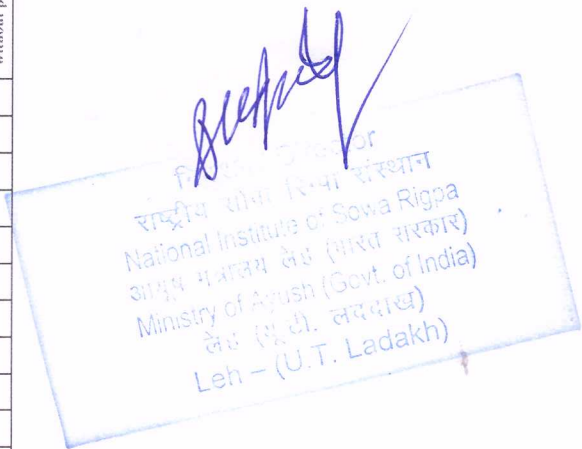 राष्ट्रीय सोवा रिग्पा संस्थान
National Institute of Sowa Rigpa
आयुष मंत्रालय लेह (भारत सरकार)
Ministry of Ayush (Govt. of India)
लेह (यू.टी. लद्दाख)
Leh – (U.T. Ladakh)